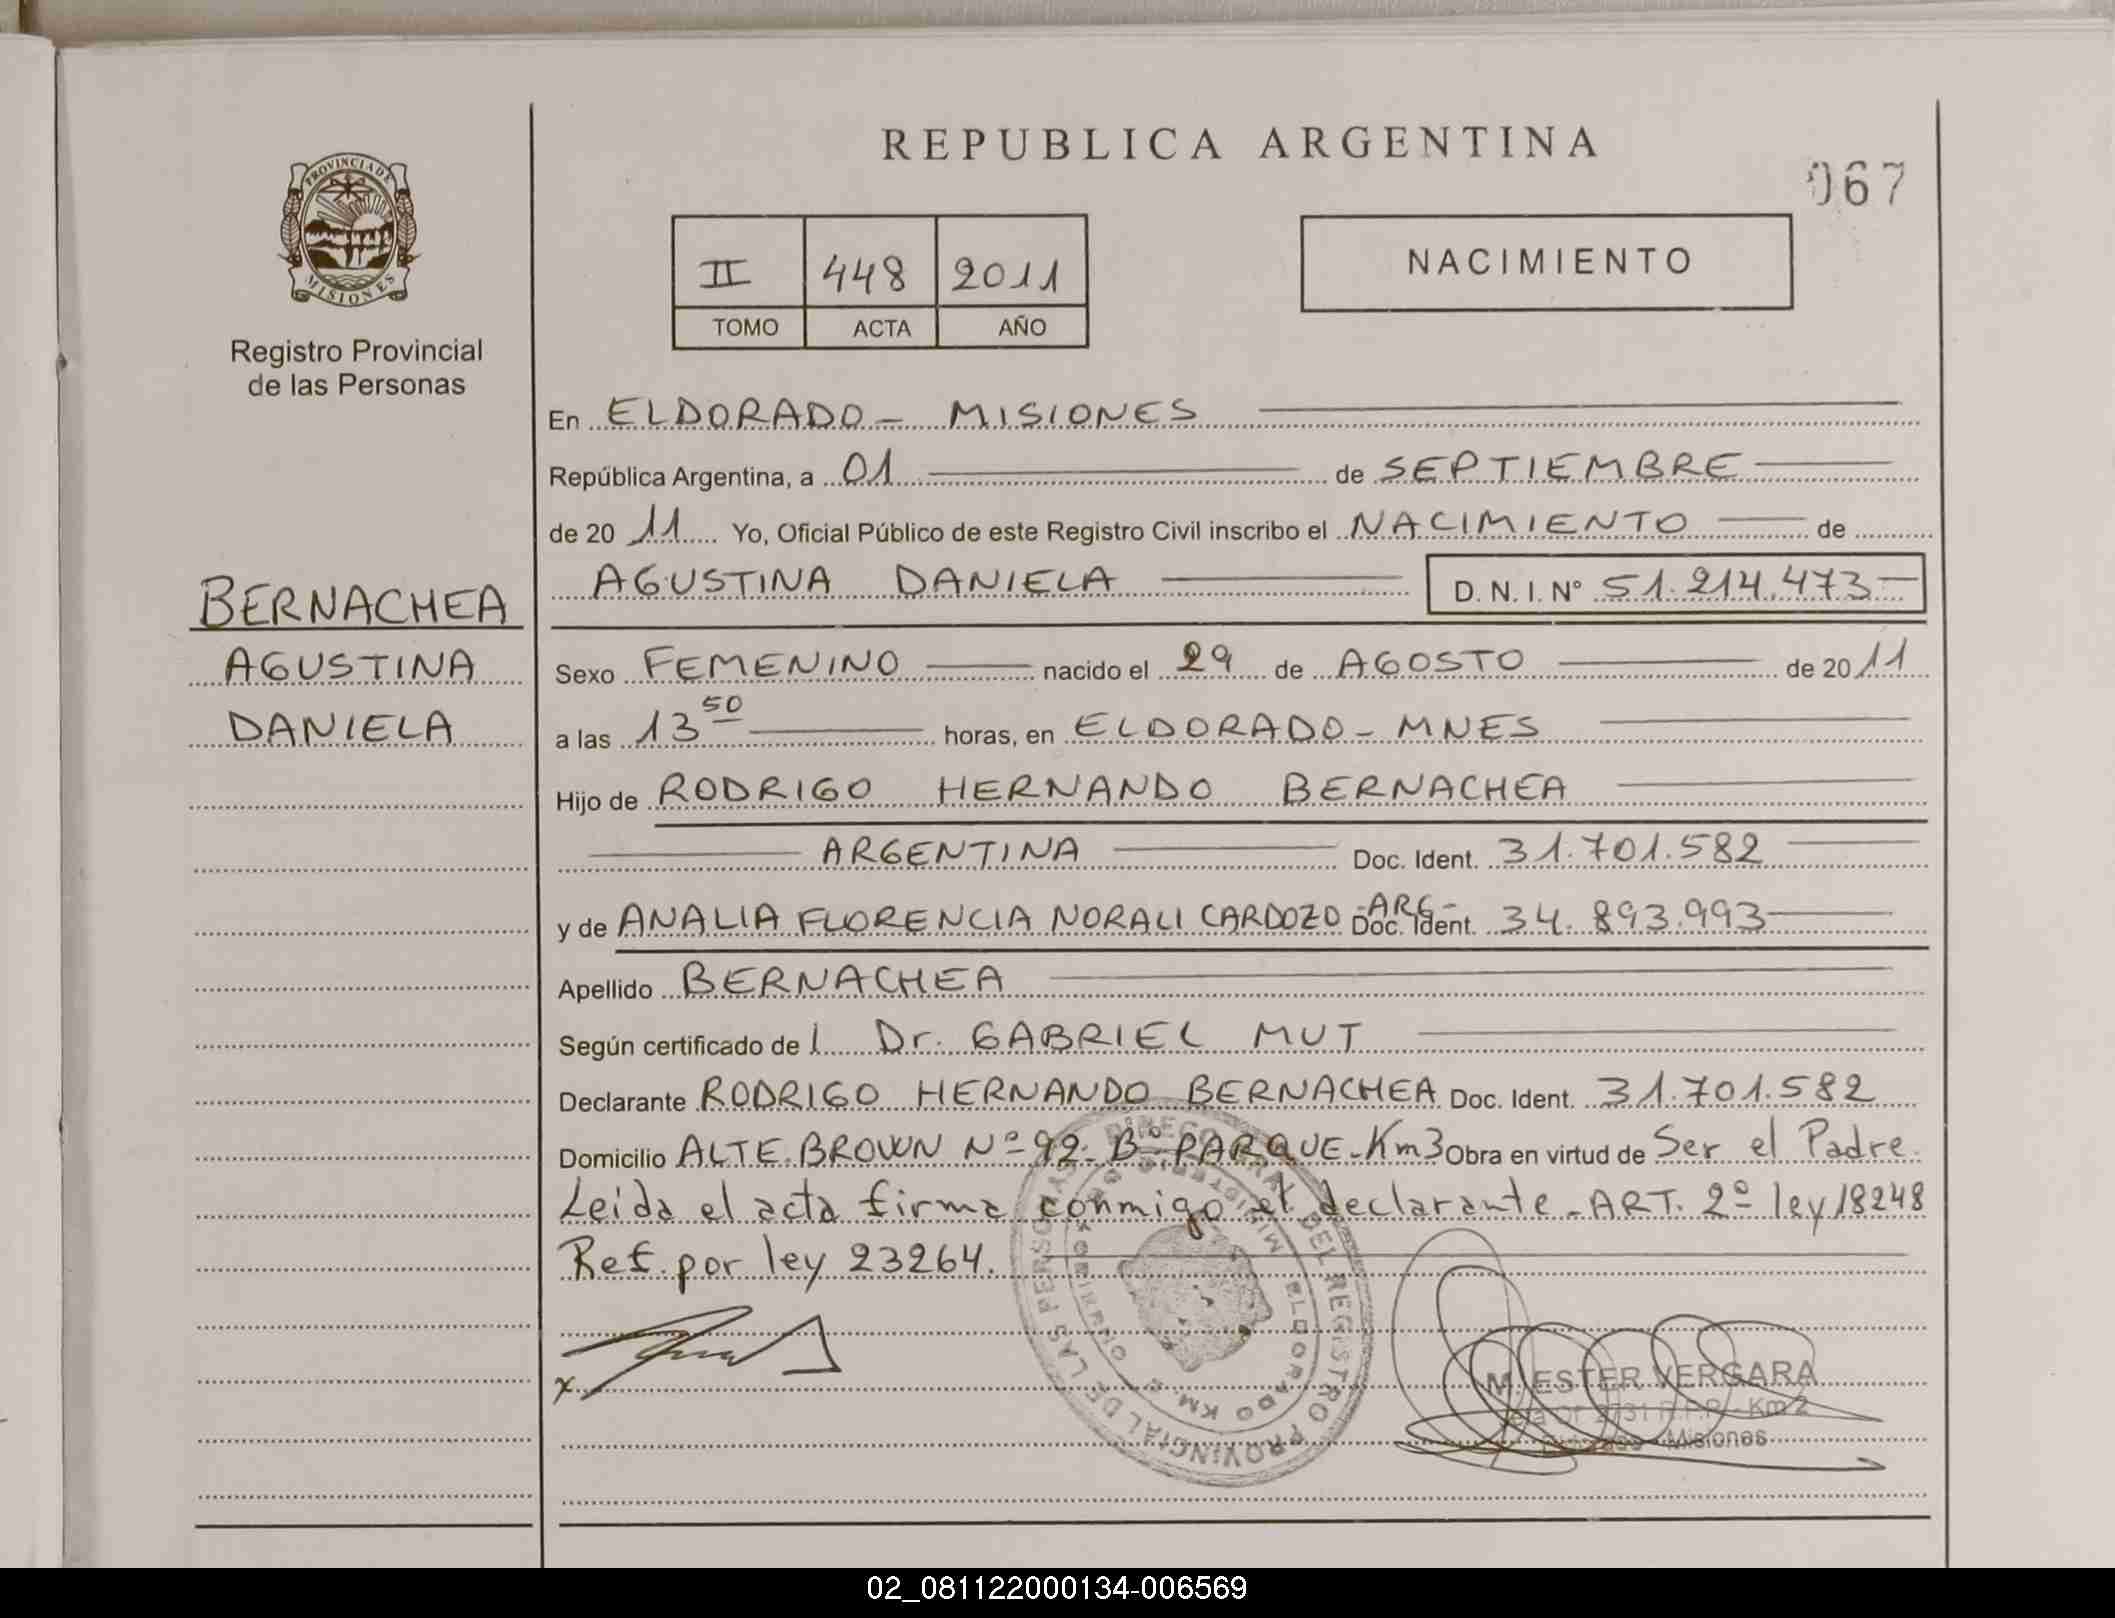 REPUBLICA ARGENTINA
067
PROVINCIA DE
MISIONES
Registro Provincial
de las Personas
II 448 2011
TOMO ACTA AÑO
NACIMIENTO
En ELDORADO - MISIONES
República Argentina, a 01 de SEPTIEMBRE
de 20 11 Yo, Oficial Público de este Registro Civil inscribo el NACIMIENTO de
AGUSTINA DANIELA D. N. I. Nº 51.214.473
BERNACHEA
AGUSTINA
DANIELA
Sexo FEMENINO nacido el 29 de AGOSTO de 2011
a las 13 50 horas, en ELDORADO - MNES
Hijo de RODRIGO HERNANDO BERNACHEA
ARGENTINA Doc. Ident. 31.701.582
y de ANALIA FLORENCIA NORALI CARDOZO -ARG- Doc. Ident. 34.893.993
Apellido BERNACHEA
Según certificado de l Dr. GABRIEL MUT
Declarante RODRIGO HERNANDO BERNACHEA Doc. Ident. 31.701.582
Domicilio ALTE. BROWN Nº 92 - Bº PARQUE - Km3 Obra en virtud de Ser el Padre.
Leida el acta firma conmigo el declarante - ART. 2º ley 18248
Ref. por ley 23264.
DEL REGISTRO PROVINCIAL DE LAS PERSONAS
ELDORADO KM 2
x
M. ESTER VERGARA
Km 2
Misiones
02_081122000134-006569